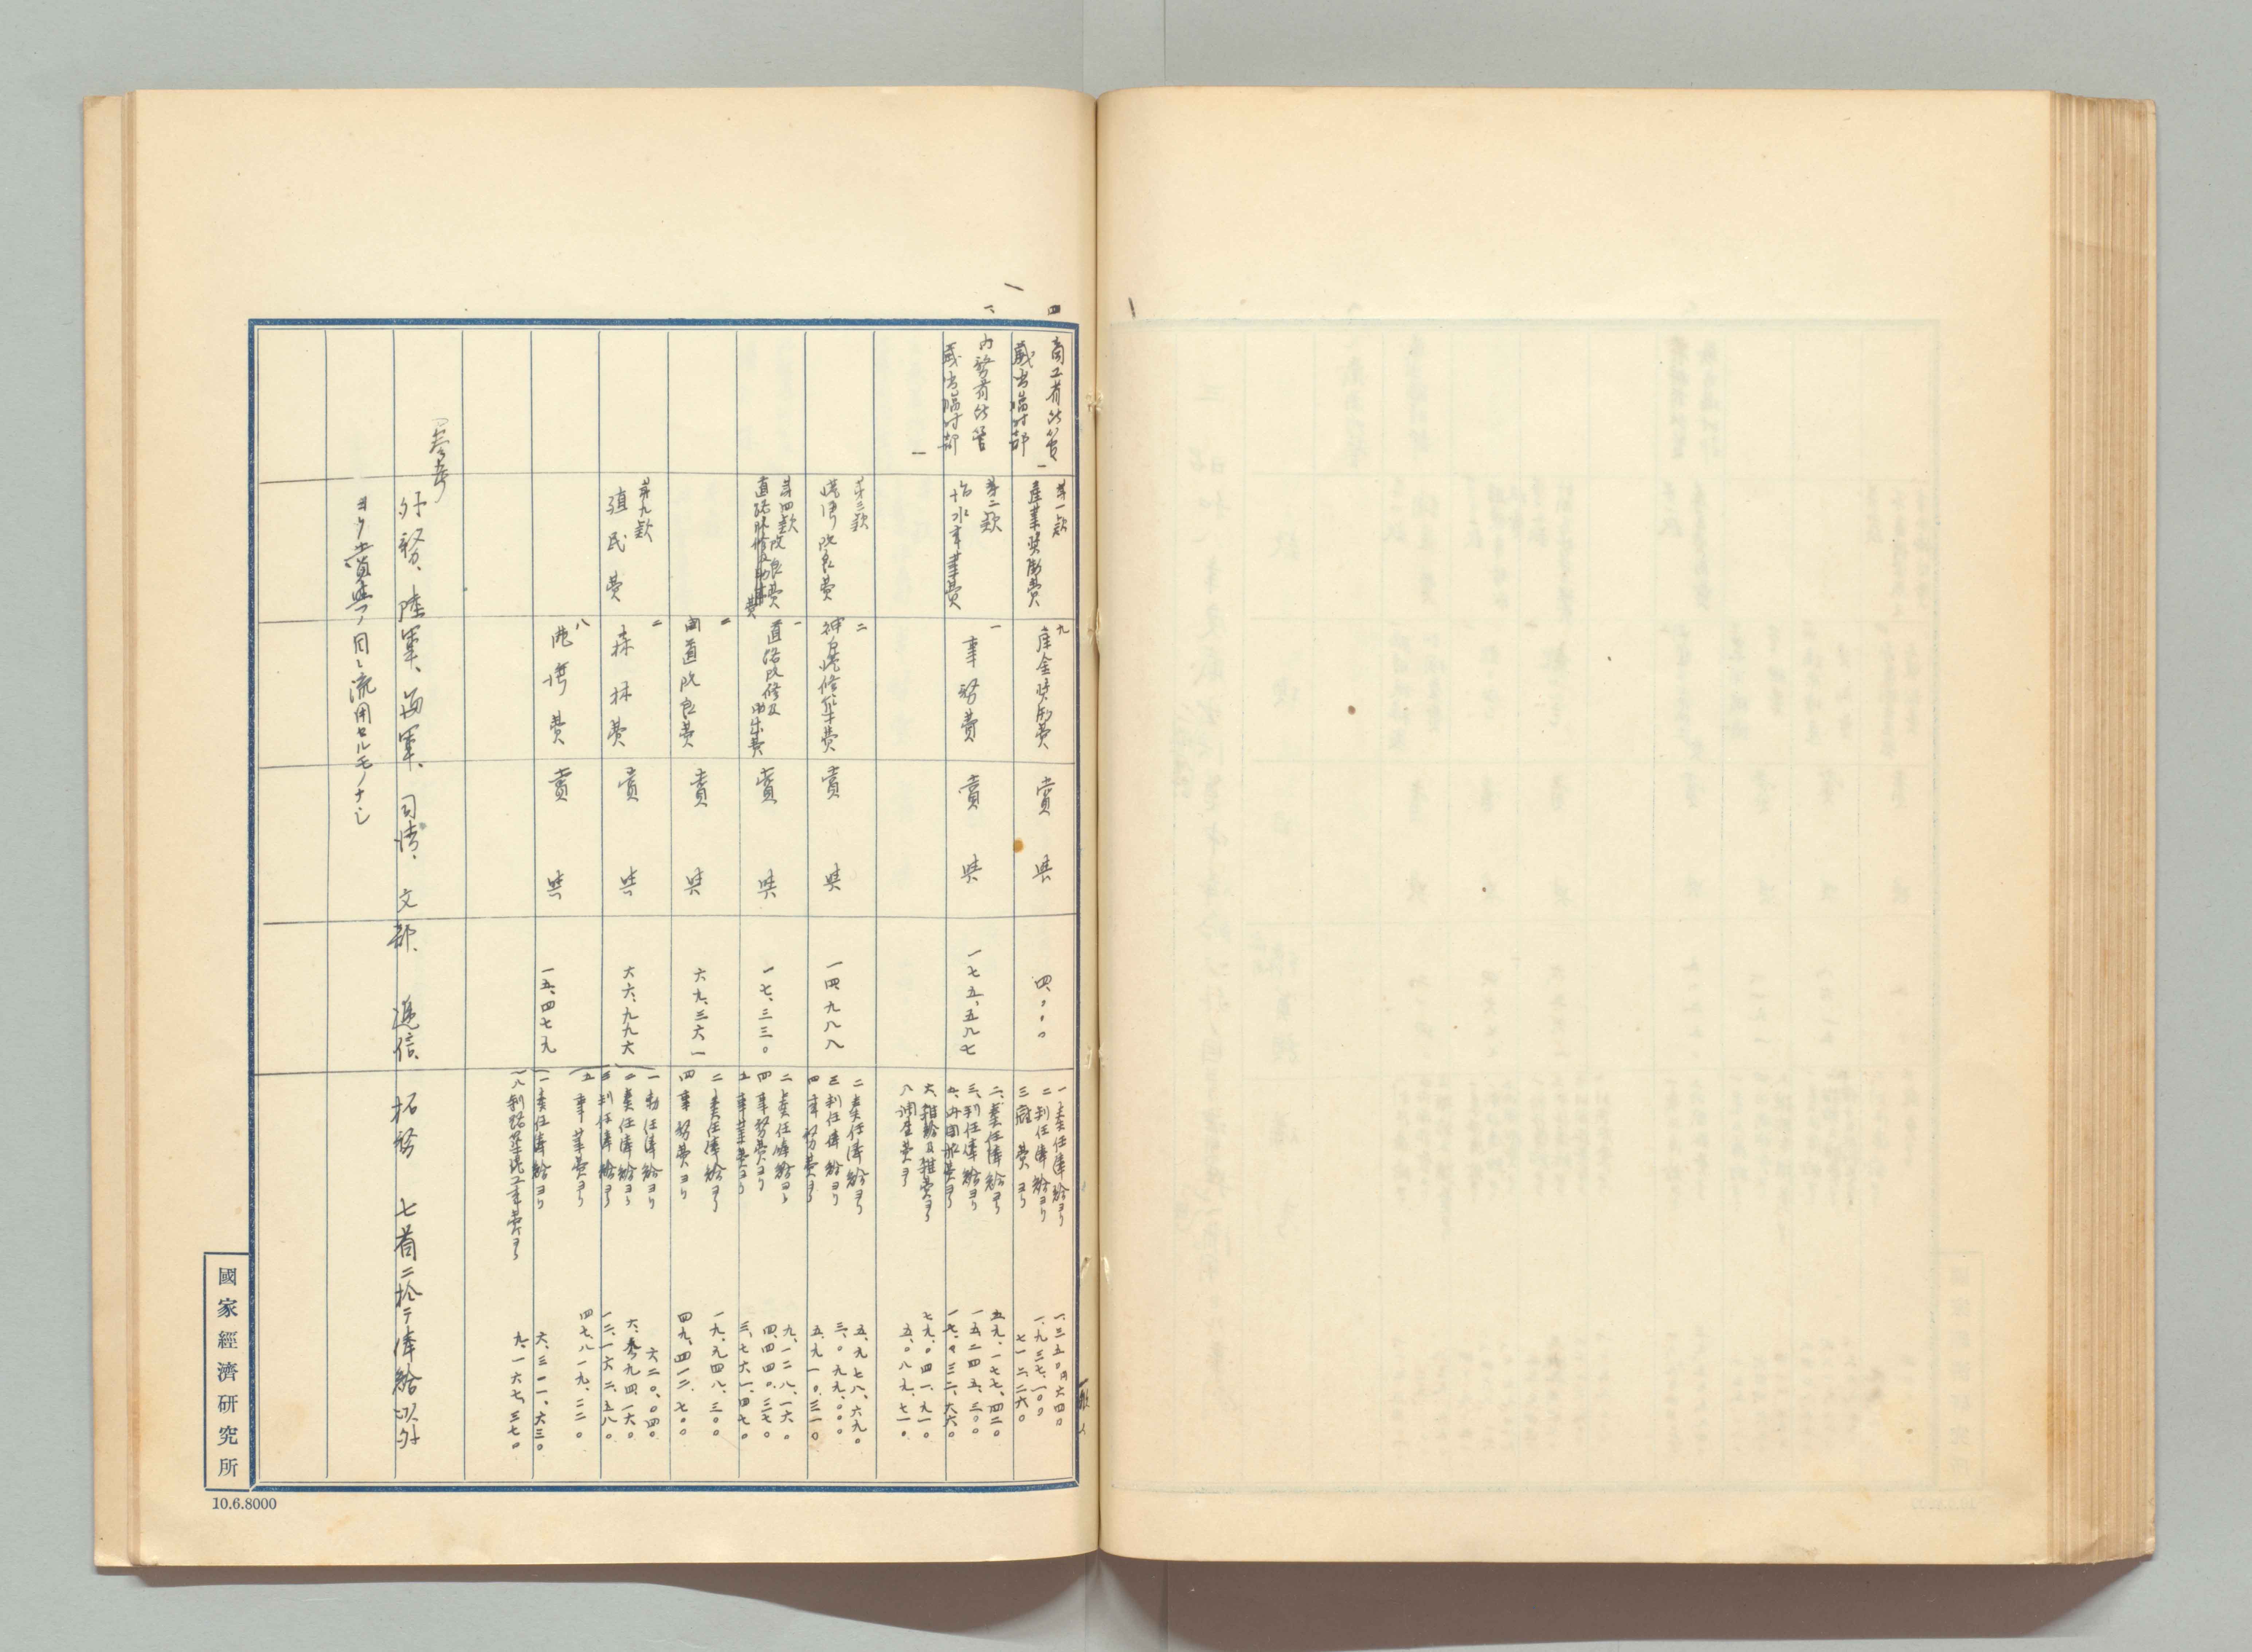 四
商工省所管
歳出臨時部
一
第一款
産業奨励費
九
産金奨励費
賞與
四、〇〇〇
一奏任俸給ヨリ
二判任俸給ヨリ
三雑費ヨリ
一、三五〇円六四〇
一、九三七、一〇〇
七一二、二六〇
一、
内務省所管
歳出臨時部
一
第二款
治水事業費
一
事務費
賞與
一七五、五八七
二、奏任俸給ヨリ
三、判任俸給ヨリ
五、内国旅費ヨリ
六、雑給及雑費ヨリ
八調査費ヨリ
五九、一七七、四二〇
一五、二四五、三〇〇
一七、〇三二、六六〇
七九、〇四一、九一〇
五、〇八九、七一〇
第三款
港湾改良費
二
神戸港修築費
賞與
一四、九八八
二奏任俸給ヨリ
三判任俸給ヨリ
四事務費ヨリ
五、九七八、六九〇
三、〇九九、〇〇〇
五、九一〇、三一〇
第四款
道路改良費
一
道路改修及助成費
賞與
一七、三三〇
二奏任俸給ヨリ
四事務費ヨリ
五事業費ヨリ
九、一二八、一六〇
四、四四〇、三七〇
三、七六一、四七〇
二
国道改良費
賞與
六九、三六一
二奏任俸給ヨリ
四事務費ヨリ
一九、九四八、三〇〇
四九、四一二、七〇〇
第九款
殖民費
二
森林費
賞與
六六、九九六
一勅任俸給ヨリ
二奏任俸給ヨリ
三判任俸給ヨリ
五事業費ヨリ
六二〇、〇四〇
六、九四、一六〇
一二、一六二、五八〇
四七、八一九、二二〇
八
港湾費
賞與
一五、四七九
一奏任俸給ヨリ
八釧路築港工事費ヨリ
六、三〇一、六三〇
九、一六七、三七〇
參考
外務、陸軍、海軍、司法、文部、逓信、拓務 七省ニ於テ俸給以外
ヨリ賞與ノ目ニ流用セルモノナシ
國家經濟研究所
10.6.8000